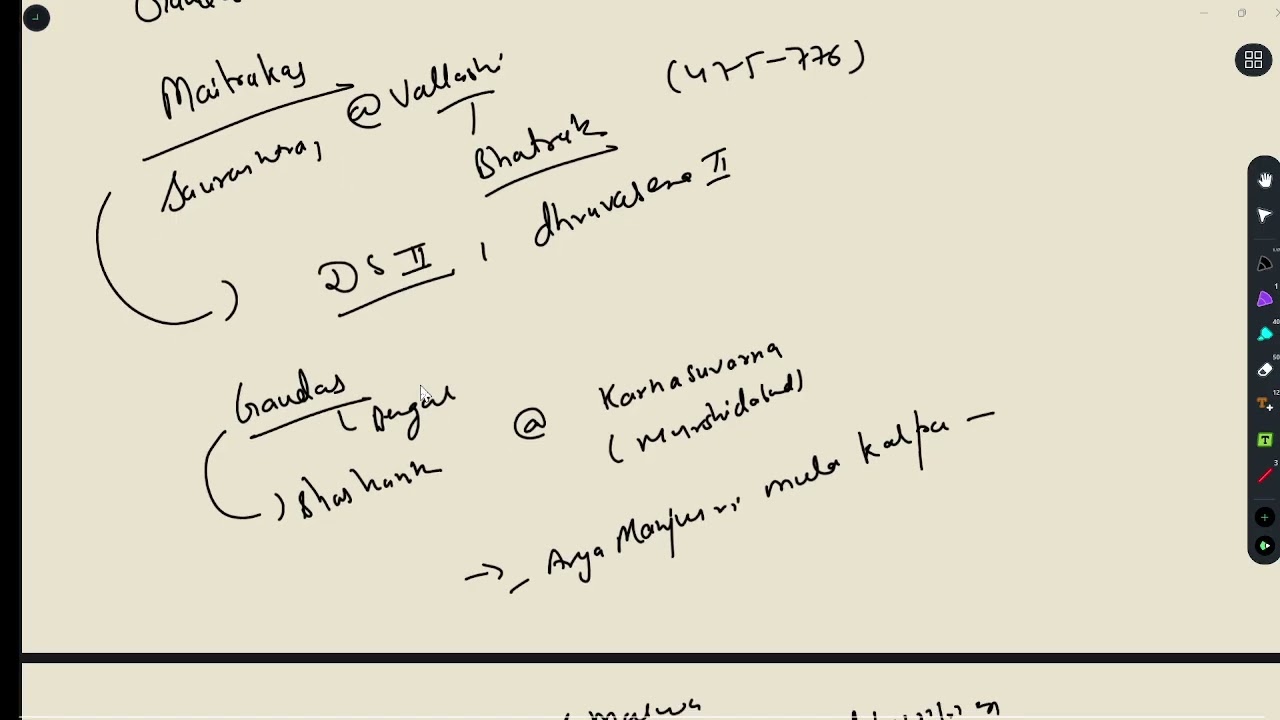 Maitrakas
@ Vallabhi
(475-776)
Saurashtra,
Bhatrak
DS II , dhruvasena II
Gaudas
@ Karnasuvarna
(Murshidabad)
→ Arya Manjusri mula kalpa –
malwa